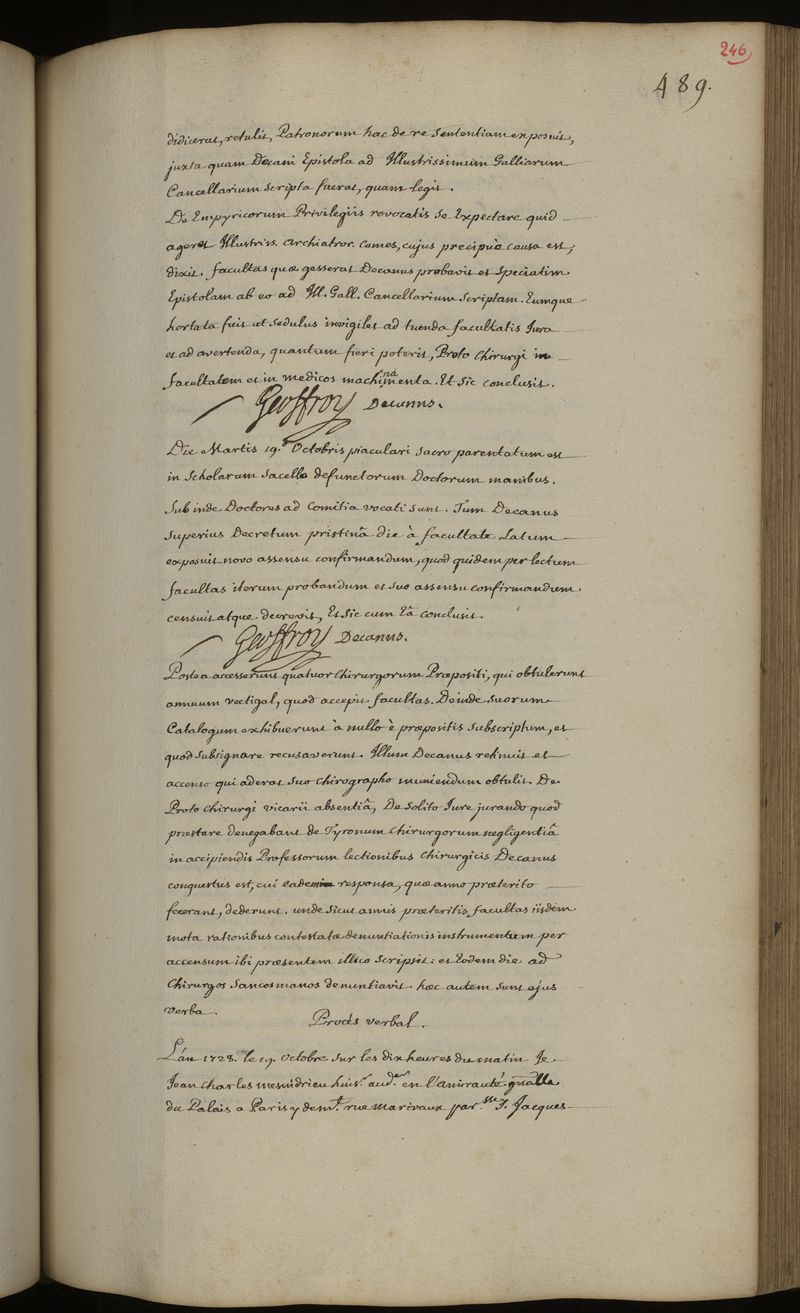 246
489.
didicerat, retulit, Patronorum hac de re Sententiam exposuit,
juxta quam Decani Epistola ad Illustrissimum Galliarum
Cancellarium scripta fuerat, quam legit.
De Empyricorum Privilegiis revocatis se Expectare quid
ageret Illustriss. Archiatror. Comes, cujus precipua causa est,
dixit. facultas quæ gesserat Decanus probavit et Speciatim
Epistolam ab eo ad Ill. Gall. Cancellarium Scriptam. Eumque
hortata fuit ut sedulus invigilet ad tuenda facultatis Jura
et ad avertenda, quantum fieri poterit, Proto Chirurgi in
facultatem et in medicos machinamenta. Et Sic conclusit.
Geoffroy Decanus.
Die Martis 19.ª Octobris piaculari sacro parentatum est
in Scholarum Sacello defunctorum Doctorum manibus.
Sub inde Doctores ad Comitia vocati sunt. Tum Decanus
Superius Decretum pristinâ die à facultate Latum
exposuit novo assensu confirmandum, quod quidem perlectum
facultas iterum probandum et suo assensu confirmandum
censuit atque decrevit, Et Sic cum Eâ conclusit.
Geoffroy Decanus.
Postea accesserunt quatuor Chirurgorum Præpositi, qui obtulerunt
annuum vectigal, quod accepit facultas. Deinde suorum
Catalogum exhibuerunt à nullo è præpositis Subscriptum, et
quod subsignare recusaverunt. Illum Decanus retinuit et
accenso qui aderat suo chirographo muniendum obtulit. De
Proto Chirurgi vicarii absentiâ, De Solito Jure jurando quod
præstare denegabant de Tyronum Chirurgorum negligentiâ
in accipiendis Professorum lectionibus Chirurgicis Decanus
conquestus est, cui eadem responsa, quæ anno præterito
fecerant, dederunt. unde Sicut annis præteritis facultas iisdem
mota rationibus contestatæ denuntiationis instrumentum per
accensum ibi præsentem illico Scripsit: et Eodem die ad
Chirurgos Sancosmanos denuntiavit. hæc autem sunt ejus
verba.
Procès verbal.
L'an 1728. le 19. Octobre sur les dix heures du matin Je
Jean Charles huis.r aud.er en l'amirauté gnalle
du Palais a Paris y dem.t rue Marivaux par.sse S. Jacques